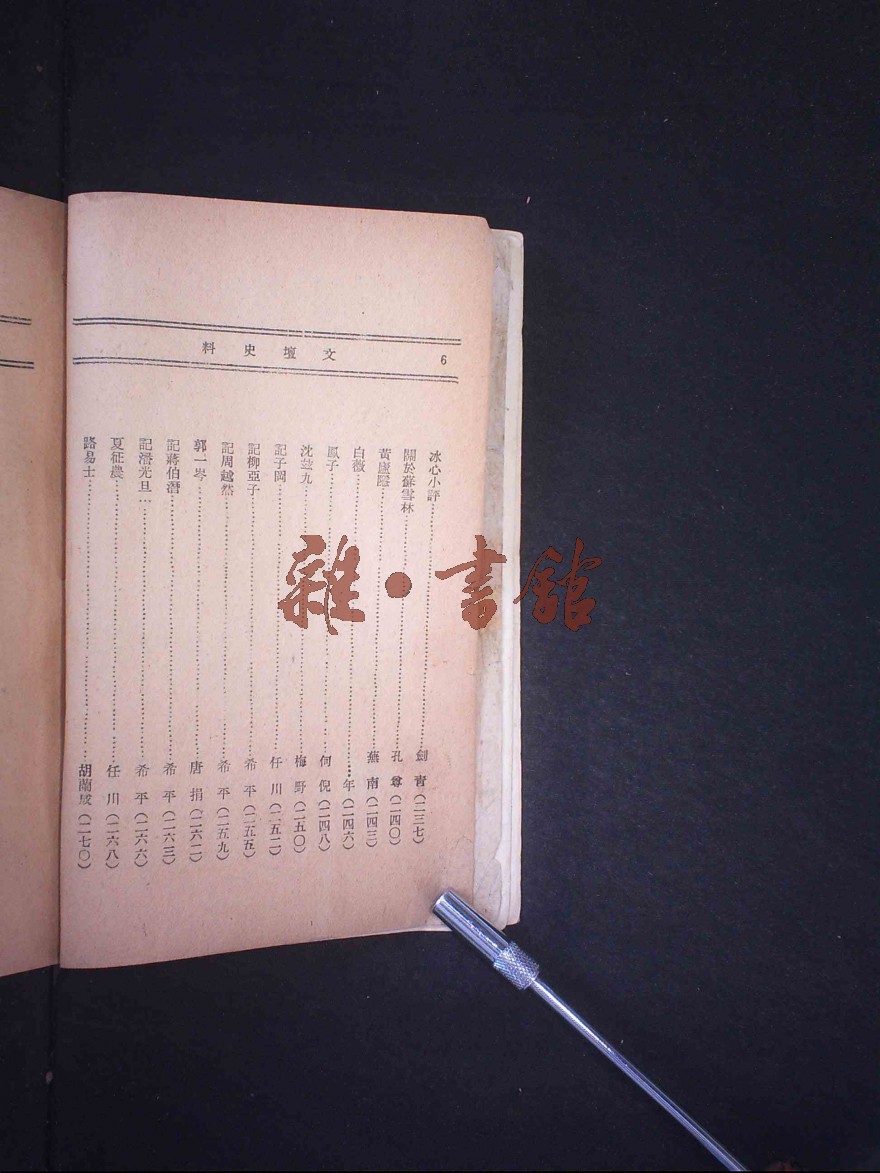 6
文壇史料
冰心小評……劍青(二三七)
關於蘇雪林……孔尊(二四〇)
黃廬隱……燕南(二四三)
白薇……年(二四六)
鳳子……何倪(二四八)
沈茲九……梅野(二五〇)
記子岡……任川(二五二)
記柳亞子……希平(二五五)
記周越然……希平(二五九)
郭一岑……唐捐(二六二)
記蔣伯潛……希平(二六三)
記潘光旦……希平(二六六)
夏征農……任川(二六八)
路易士……胡蘭成(二七〇)
雜·書館